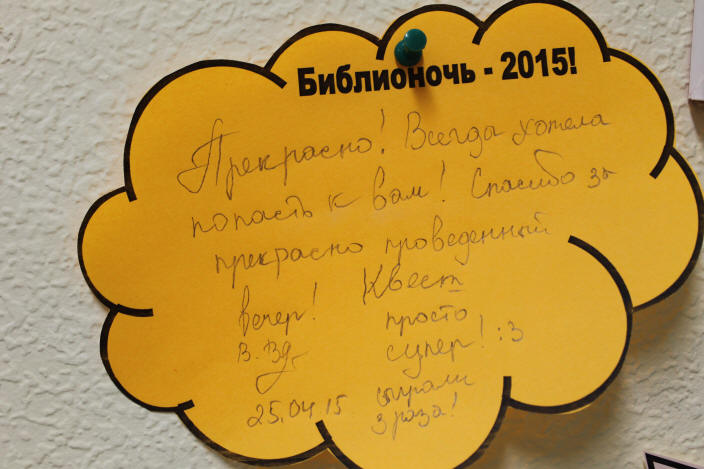 Библионочь - 2015!
Прекрасно! Всегда хотела
попасть к вам! Спасибо за
прекрасно проведенный
вечер! Квест
просто
супер! :3
сыграли
3 раза!
25.04.15